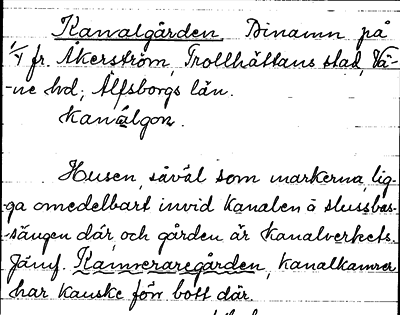 Kanalgården Binamn på
1/4 fr. Åkerström, Trollhättans stad, Vä-
-ne hd; Älfsborgs län.
Kanálgoṇ.
Husen, såväl som markerna, lig-
ga omedelbart invid kanalen o slussbas-
sängen där, och gården är Kanalverkets.
Jämf. Kamreraregården, kanalkamrer
har kanske förr bott där.